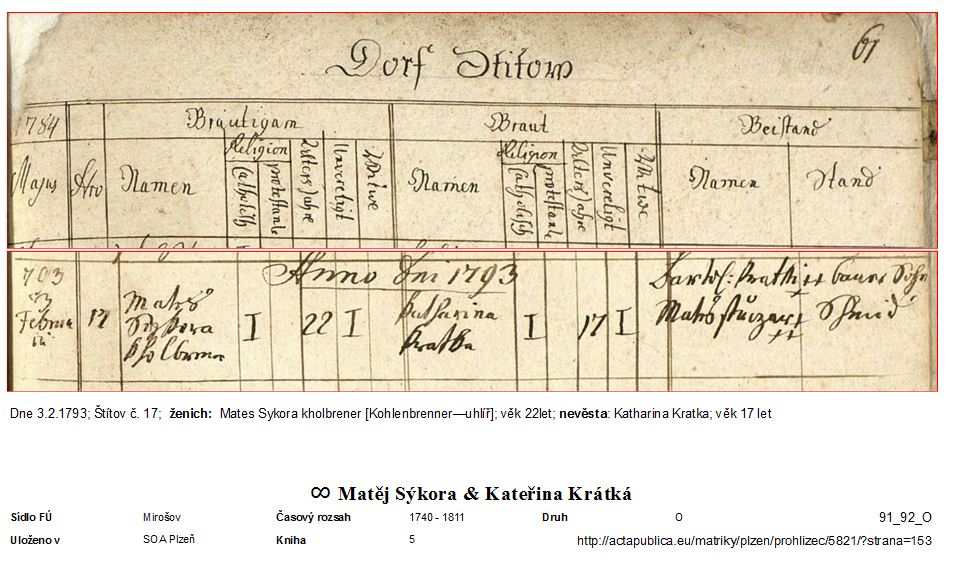 61
Dorf Stitow
1784 Bräutigam Braut Beistand
Majus Nro Namen Religion Catholisch protestante Alters Jahre Unvereligt Witwe Namen Religion Catholisch protestante Alters Jahre Unvereligt Witwe Namen Stand
Anno Dni 1793
793
3
Februa
rii
17
Mateš
Sykora
kholbrener
I 22 I
Katharina
Kratka
I 17 I
Bartol: Kratki ++ bauer Sohn
Mateš ++ Schmid
Dne 3.2.1793; Štítov č. 17; ženich: Mates Sykora kholbrener [Kohlenbrenner—uhlíř]; věk 22let; nevěsta: Katharina Kratka; věk 17 let
∞ Matěj Sýkora & Kateřina Krátká
Sídlo FÚ Mirošov Časový rozsah 1740 - 1811 Druh O 91_92_O
Uloženo v SOA Plzeň Kniha 5 http://actapublica.eu/matriky/plzen/prohlizec/5821/?strana=153